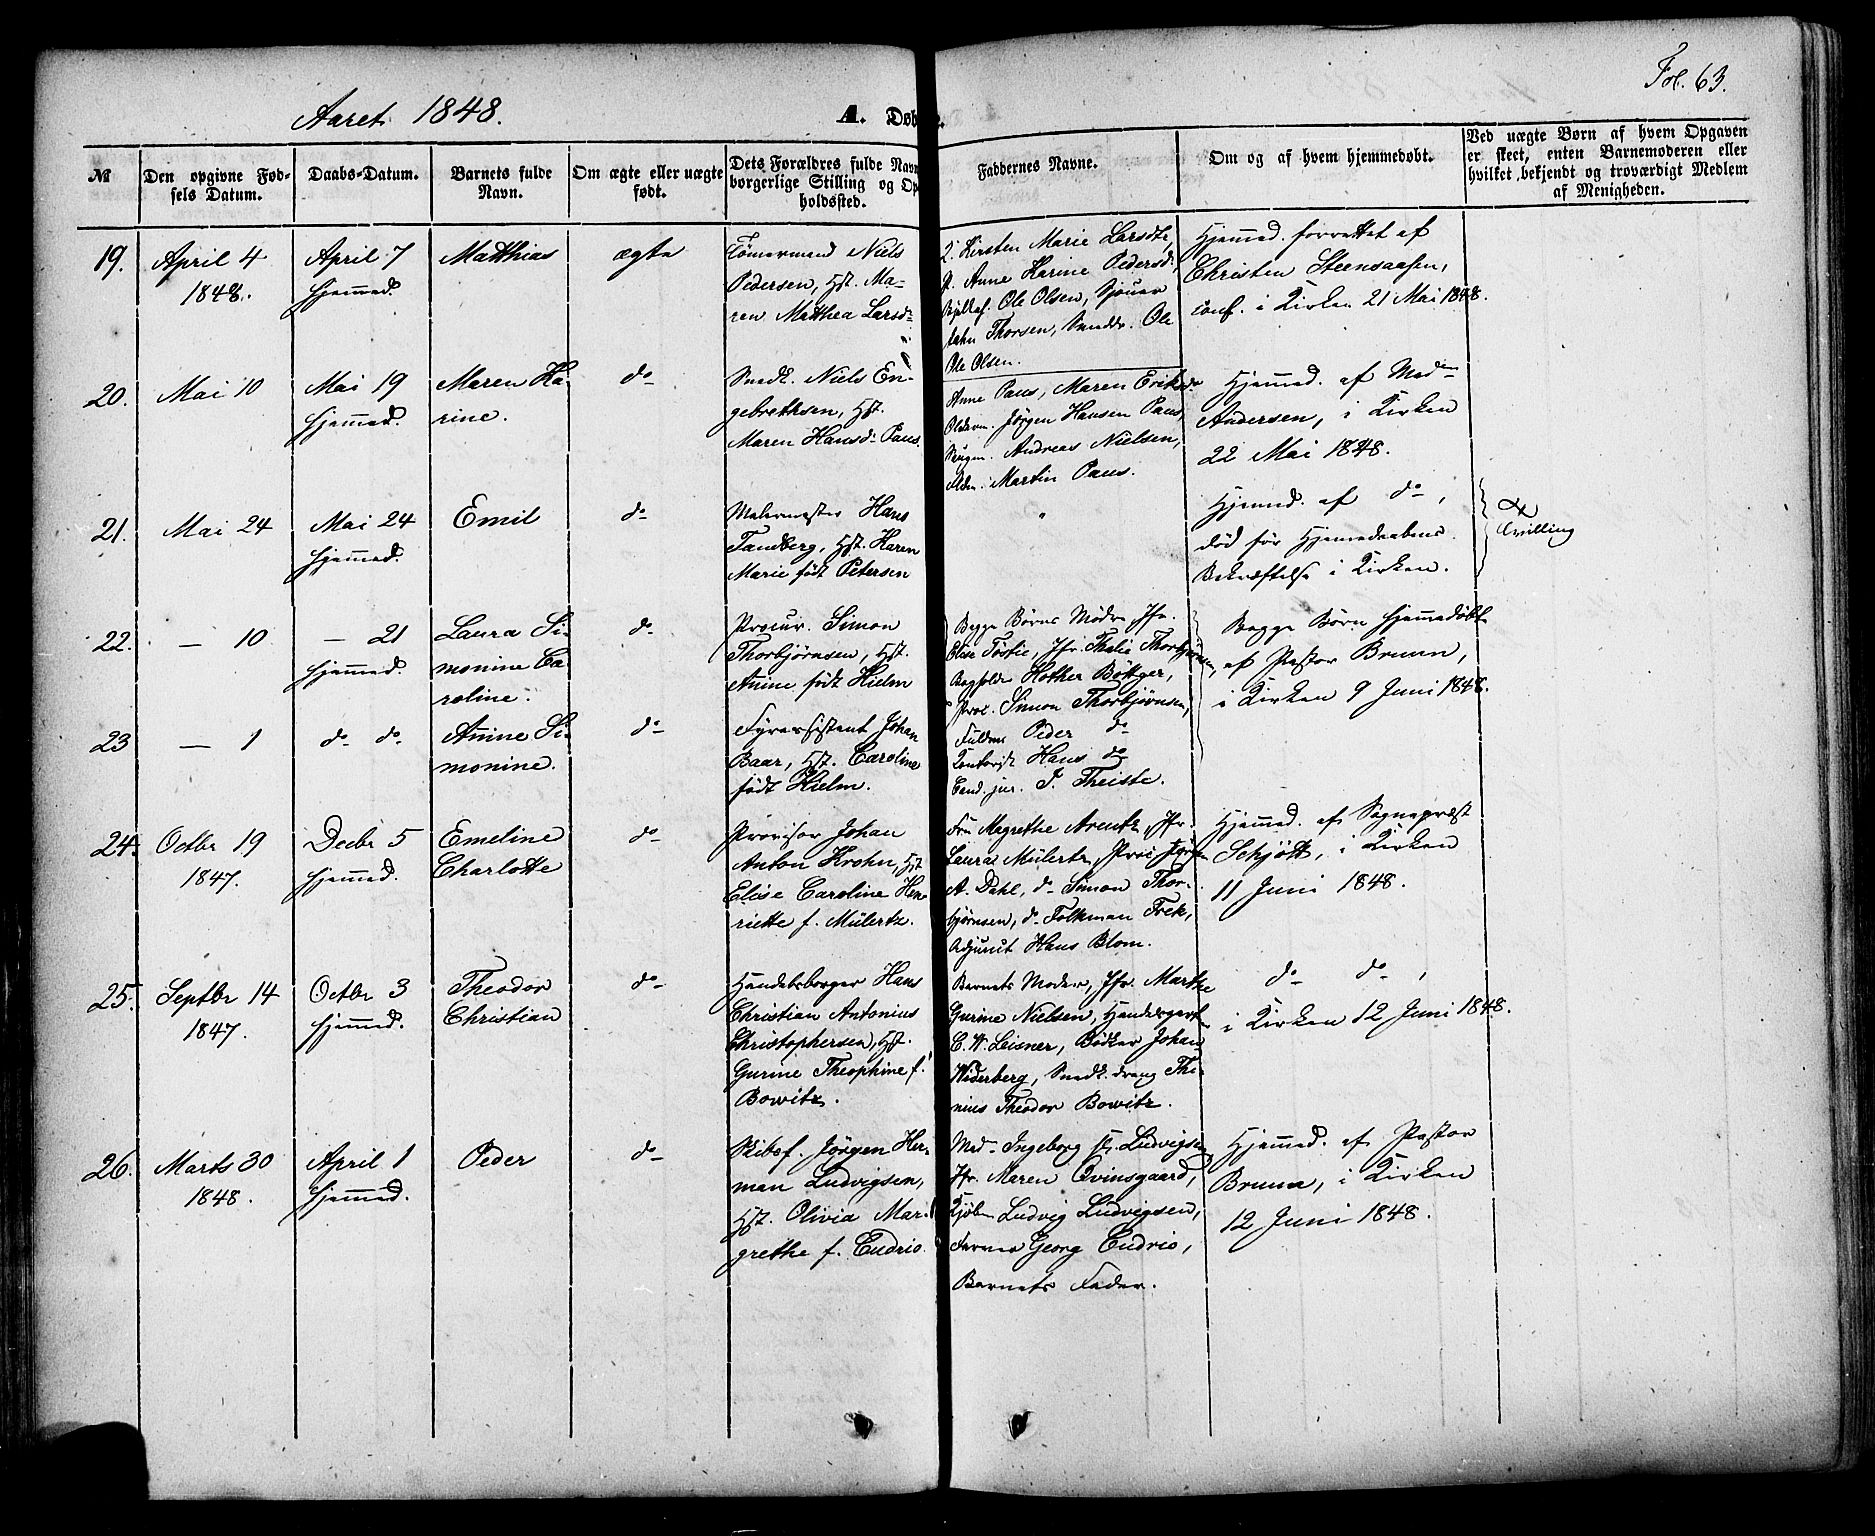 Fol. 63.
Aaret 1848.
A. Døbte.
No
Den opgivne Fød-
sels Datum.
Daabs-Datum.
Barnets fulde
Navn.
Om ægte eller uægte
født.
Dets Forældres fulde Navn
borgerlige Stilling og Op
holdssted.
Faddernes Navne.
Om og af hvem hjemmedøbt.
Ved uægte Børn af hvem Opgaven
er skeet, enten Barnemoderen eller
hvilket bekjendt og troværdigt Medlem
af Menigheden.
19.
April 4
1848.
April 7
hjemmed.
Matthias
ægte
Tømermand Niels
Pedersen, Hst. Ma-
ren Matthea Larsdr
Q. Kirsten Marie Larsdtr,
P. Anne Karine Pedersd.
Ole Olsen, Sjouer
Thorsen, Ole
Ole Olsen.
Hjemmed. forrettet af
Christen Steensaasen,
conf. i Kirken 21 Mai 1848.
20.
Mai 10
Mai 19
hjemmed.
Maren Ka-
rine.
do
Snedk. Niels En-
gebrethsen, Hst.
Maren Hansdr Paus.
Anne Paus, Maren Eriksdr
Jørgen Hansen Paus,
Andreas Nielsen,
Martin Paus.
Hjemmed. af Mad
Andersen, i Kirken
22 Mai 1848.
21.
Mai 24
Mai 24
hjemmed.
Emil
do
Malermester Hans
Tandberg, Hst. Karen
Marie født Petersen
"
Hjemmed. af do,
død før Hjemedaabens
Bekræftelse i Kirken.
Tvilling
22.
— 10
— 21
hjemmed.
Laura Si-
monine Ca-
roline.
do
Procur. Simon
Thorbjørnsen, Hst.
Anine født Hielm
Begge Børns Mødre, Jfr.
Elise Jfr. Thalia Thorbjørnsen,
Hother Bøttger,
Proc. Simon Thorbjørnsen,
Begge Børn hjemmedøbt
af Pastor Bruun,
i Kirken 9 Juni 1848.
23
— 1
do do
Anine Si-
monine.
do
Fyrassistent Johan
Baar, Hst. Caroline
født Hielm.
Fuldm. Peder do
Kontorist Hans do
Cand. jur. J. Theiste.
24.
Octbr 19
1847.
Decbr 5
hjemmed.
Emeline
Charlotte
do
Provisor Johan
Anton Krohn, Hst
Elise Caroline Hen
riette f. Mülertz.
Fru Magrethe Arentz, Jfr.
Laura Mülertz, Proc. Jørgen
A. Dahl, do Simon Thor-
bjørnsen, do Folkman Trek,
Adjunct Hans Blom.
Hjemmed. af Sognepræst
Schjøtt, i Kirken
11 Juni 1848.
25.
Septbr 14
1847.
Octbr 3
hjemmed.
Theodor
Christian
do
Handelsborger Hans
Christian Antonius
Christophersen, Hst.
Gurine Theophine f.
Bowitz.
Barnets Moder, Jfr. Marthe
Gurine Nielsen,
C. W. Leisner, Bødker Johan
Widerberg, Snedk. dreng Thi-
nius Theodor Bowitz.
do do,
i Kirken 12 Juni 1848.
26.
Marts 30
1848.
April 1
hjemmed.
Peder
do
Skibsf. Jørgen Her-
man Ludvigsen,
Hst. Olivia Mar-
grethe f. Cudrio.
Mad. Ingeborg Ludvigsen,
Jfr. Maren Qvinsgaard,
Kjøbm Ludvig Ludvigsen,
Farver Georg Cudrio,
Barnets Fader.
Hjemmed. af Pastor
Bruun, i Kirken
12 Juni 1848.